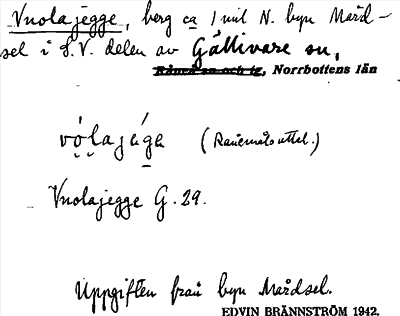 Vuolajegge, berg ca 1 mil N. byn Mård-
sel i S.V. delen av Gällivare sn,
Råneå sn och tg, Norrbottens län
vó̤la̤já̤ga (RåneMåls uttal.)
Vuolajegge G. 29.
Uppgiften från byn Mårdsel.
EDVIN BRÄNNSTRÖM 1942.